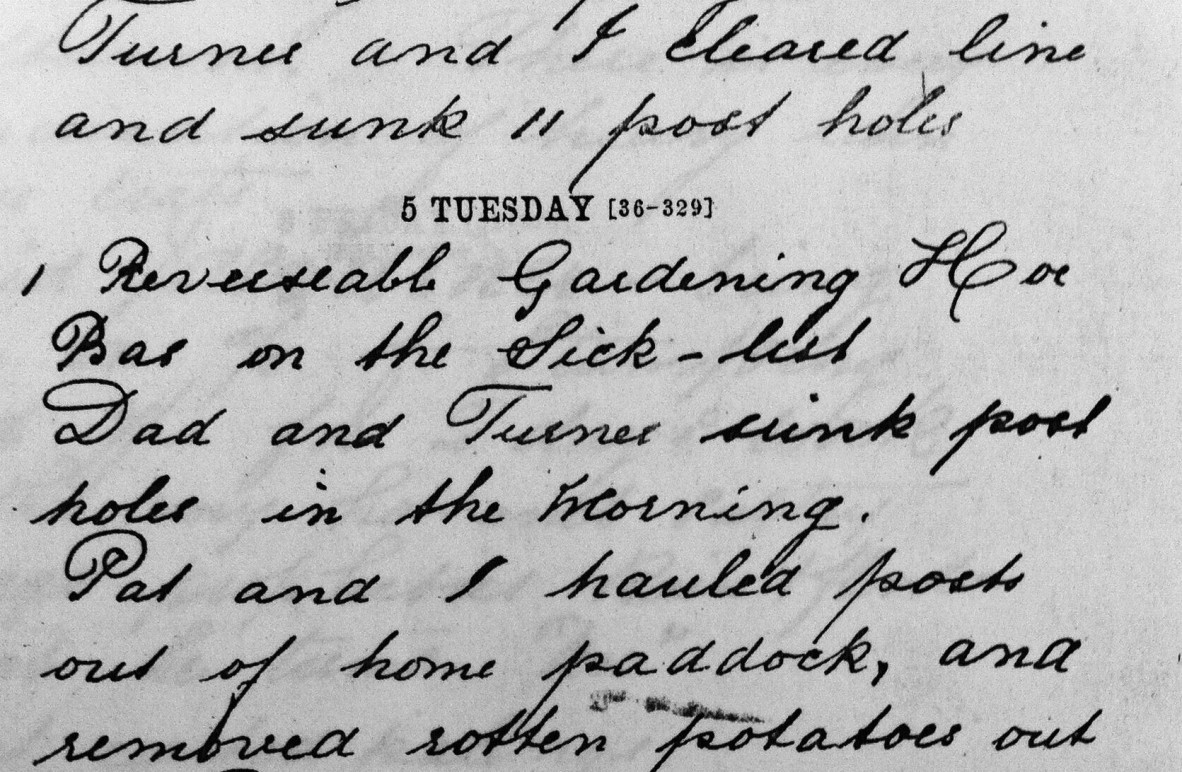 Turner and I cleared line
and sunk 11 post holes
5 TUESDAY [36-329]
1 Reverseable Gardening Hoe
Bas on the Sick-list
Dad and Turner sunk post
holes in the Morning.
Pat and I hauled posts
out of home paddock, and
removed rotten potatoes out